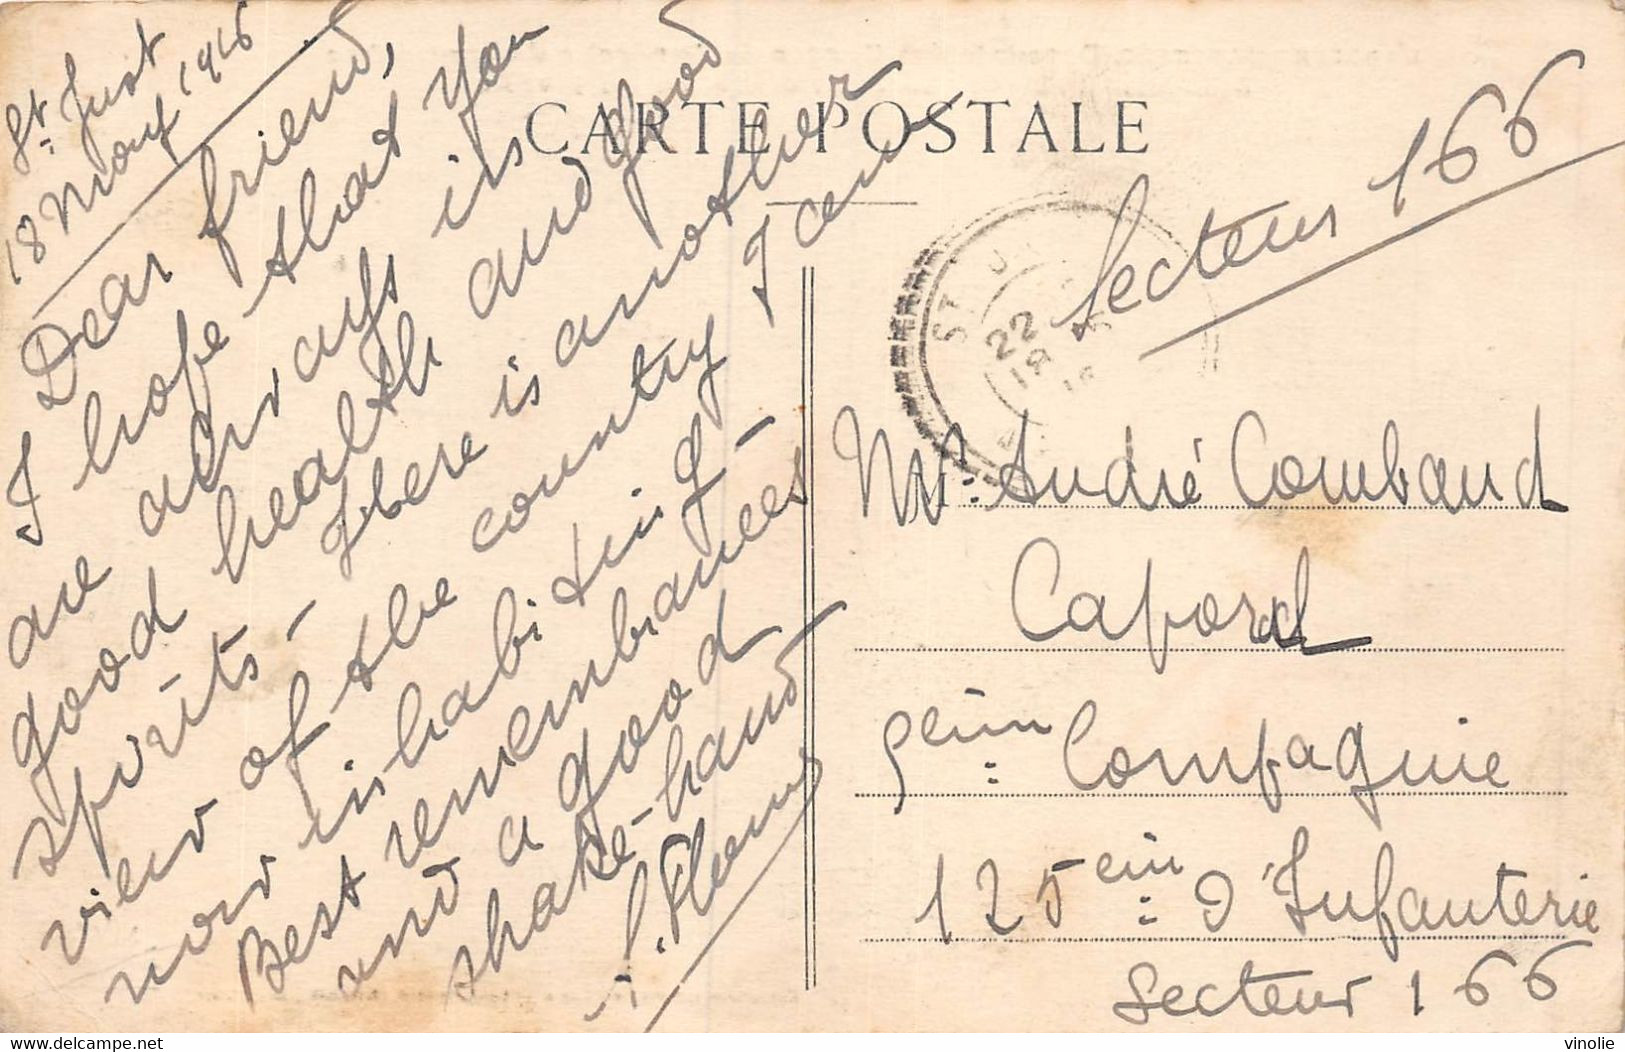 St. Just
18 1916
Dear friend,
I hope that you
are always in
good health and good
spirits - there is another
view of the country I am
now inhabiting -
Best remembrances
and a good
shake-hand
CARTE POSTALE
Secteur 166
ST JU
22
Mr. André Combaud
Caporal
Compagnie
125em d'Infanterie
Secteur 166
Delcampe.net
vinolie